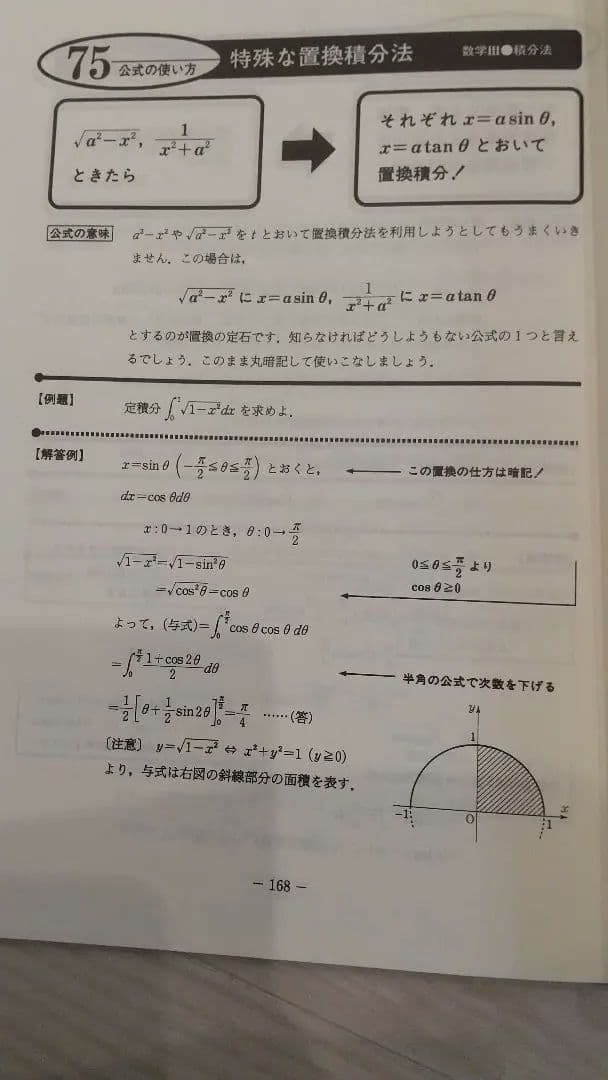 75 公式の使い方 特殊な置換積分法 数学Ⅲ●積分法
√(a²−x²), 1/(x²+a²)
ときたら
それぞれ x=a sin θ,
x=a tan θ とおいて
置換積分!
公式の意味 a²−x² や √(a²−x²) を t とおいて置換積分法を利用しようとしてもうまくいき
ません．この場合は，
√(a²−x²) に x=a sin θ, 1/(x²+a²) に x=a tan θ
とするのが置換の定石です．知らなければどうしようもない公式の1つと言え
るでしょう．このまま丸暗記して使いこなしましょう．
【例題】 定積分 ∫₀¹ √(1−x²) dx を求めよ．
【解答例】 x=sin θ (−π/2≦θ≦π/2) とおくと， ← この置換の仕方は暗記!
dx=cos θdθ
x:0→1のとき，θ:0→π/2
√(1−x²)=√(1−sin²θ)
0≦θ≦π/2 より
=√(cos²θ)=cos θ
cos θ≧0
よって，(与式)=∫₀^(π/2) cos θ cos θ dθ
=∫₀^(π/2) (1+cos 2θ)/2 dθ ← 半角の公式で次数を下げる
=1/2[θ+1/2 sin 2θ]₀^(π/2)=π/4 ……(答)
〔注意〕 y=√(1−x²) ⇔ x²+y²=1 (y≧0)
より，与式は右図の斜線部分の面積を表す．
y
1
−1 O 1 x
− 168 −